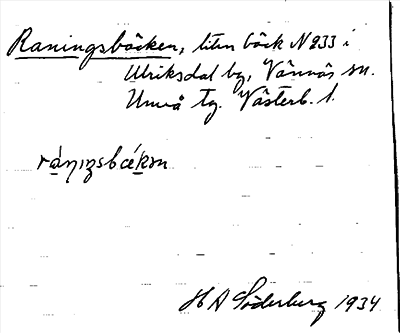 Raningsbäcken, liten bäck N 233 i
Ulriksdal by, Vännäs sn.
Umeå tg. Västerb. l.
H A Söderberg 1934